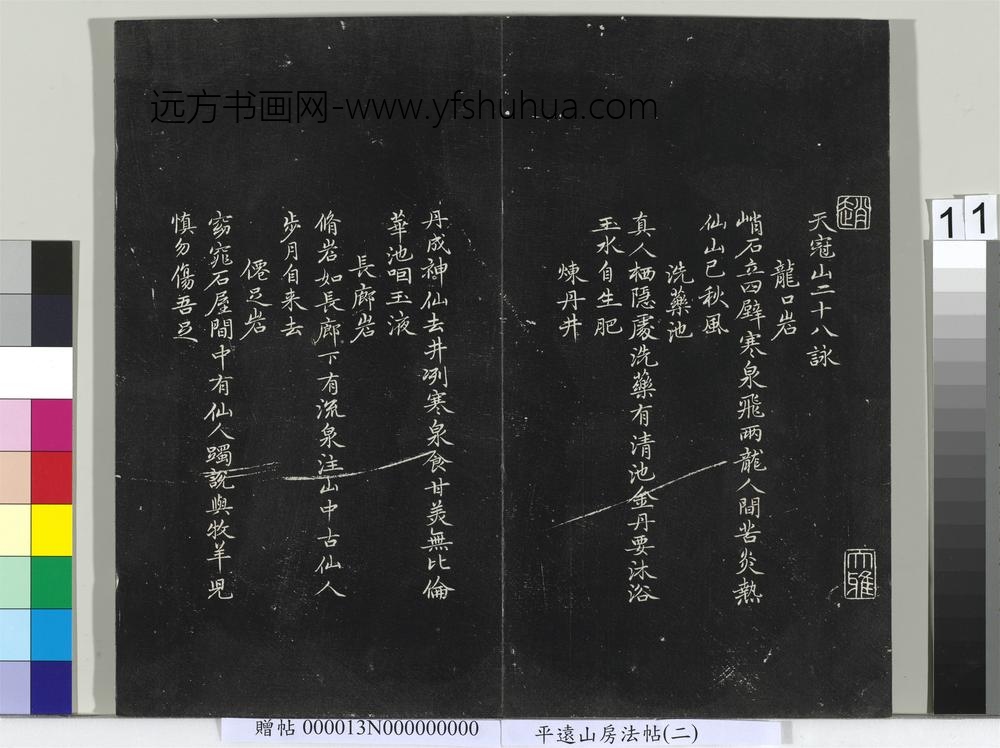 远方书画网-www.yfshuhua.com
趙
大雅
天冠山二十八詠
龍口岩
峭石立四壁寒泉飛兩龍人間苦炎熱
仙山已秋風
洗藥池
真人栖隱處洗藥有清池金丹要沐浴
玉水自生肥
煉丹井
丹成神仙去井冽寒泉食甘美無比倫
華池咽玉液
長廊岩
脩岩如長廊下有流泉注山中古仙人
步月自来去
僊足岩
窈窕石屋間中有仙人躅說與牧羊兒
慎勿傷吾足
11
贈帖 000013N000000000
平遠山房法帖(二)